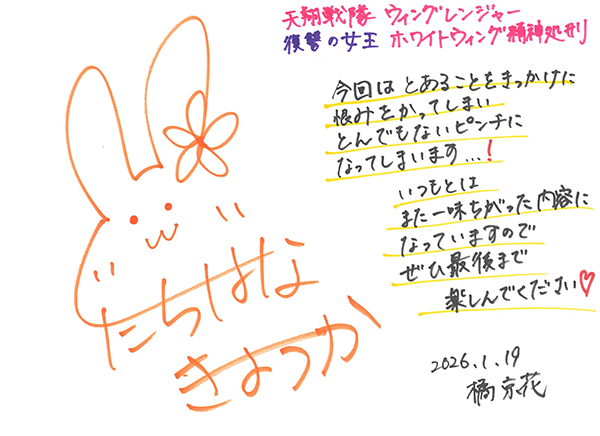 天翔戦隊 ウィングレンジャー
復讐の女王 ホワイトウィング精神処刑
今回は とあることをきっかけに
恨みをかってしまい
とんでもないピンチに
なってしまいます…！
いつもとは
また一味ちがった内容に
なっていますので
ぜひ最後まで
楽しんでください♡
2026.1.19
橘京花
たちばな
きょうか